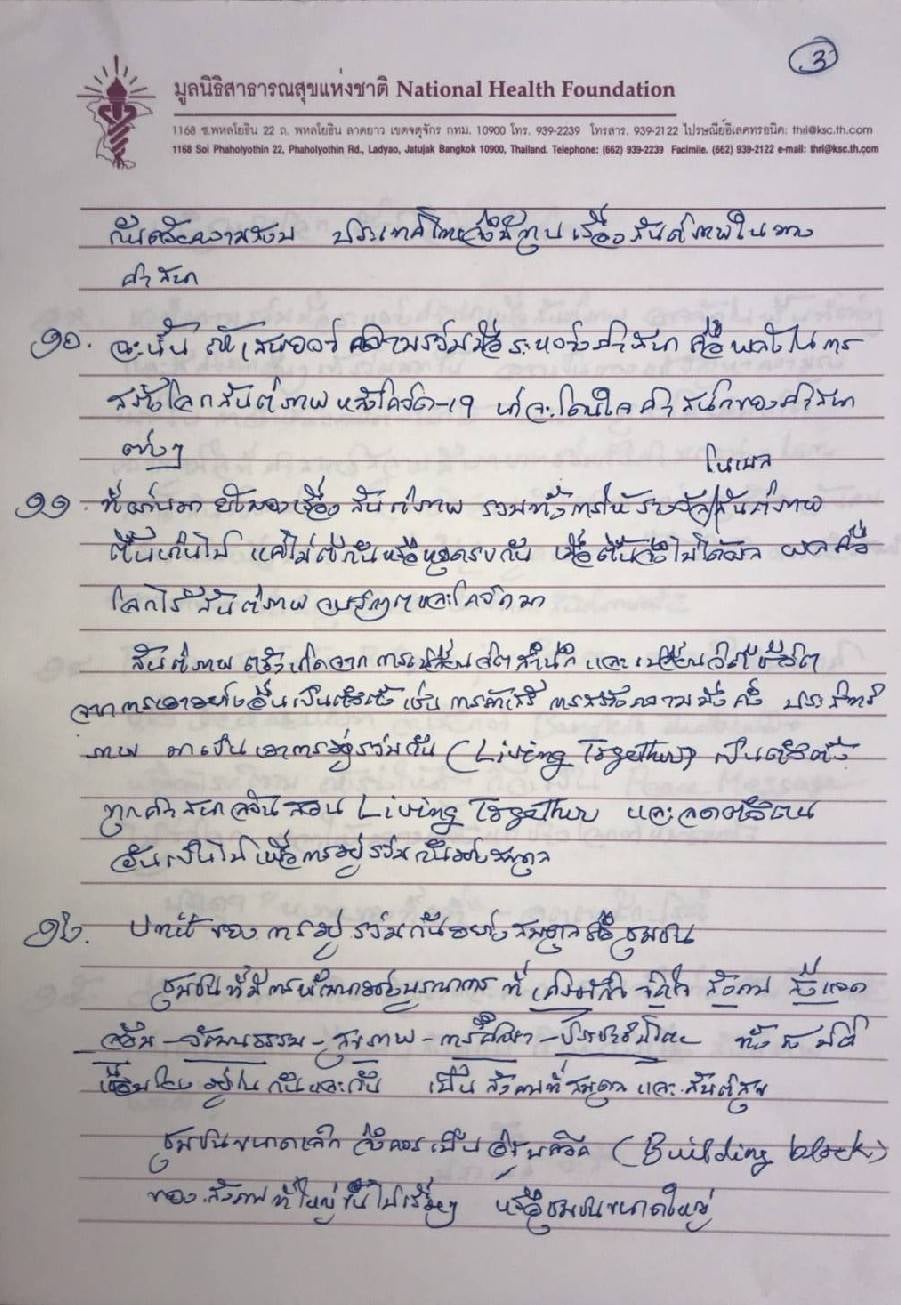 3
มูลนิธิสาธารณสุขแห่งชาติ National Health Foundation
1168 ซ.พหลโยธิน 22 ถ. พหลโยธิน ลาดยาว เขตจตุจักร กทม. 10900 โทร. 939-2239 โทรสาร. 939-2122 ไปรษณีย์อีเลคทรอนิค: thri@ksc.th.com
1168 Soi Phaholyothin 22, Phaholyothin Rd., Ladyao, Jatujak Bangkok 10900, Thailand. Telephone: (662) 939-2239 Facimile. (662) 939-2122 e-mail: thri@ksc.th.com
กันด้วยความสงบ ประเทศไทยจึงมีทุนเรื่องสันติภาพในทาง
ศาสนา
๑๐. ฉะนั้น ความร่วมมือระหว่างศาสนา คือพลังในการ
สร้างโลกสันติภาพหลังโควิด-19 ของศาสนา
ต่างๆ
โนเบล
๑๑ ที่ผ่านมา ยังมองเรื่องสันติภาพ รวมทั้งการให้รางวัลสันติภาพ
ตื้นเกินไป แค่ไม่ฆ่ากันหรือหยุดรบกัน เมื่อตื้นจึงไม่ได้ผล ผลคือ
โลกไร้สันติภาพ จนวิกฤตและโควิดมา
สันติภาพต้องเกิดจากการเปลี่ยนจิตสำนึก และเปลี่ยนวิถีชีวิต
จากการเอาอย่างอื่นเป็นตัวตั้ง เช่น การค้าเสรี การสร้างความมั่งคั่ง ประสิทธิ
ภาพ มาเป็นเอาการอยู่ร่วมกัน (Living Together) เป็นตัวตั้ง
ทุกศาสนาล้วนสอน Living Together และลดตัวตน
อันเป็นไปเพื่อการอยู่ร่วมกันอย่างสมดุล
๑๒. ของการอยู่ร่วมกันอย่างสมดุลคือชุมชน
ชุมชนที่มีการพัฒนาอย่างบูรณาการที่ เศรษฐกิจ จิตใจ สังคม สิ่งแวด
ล้อม - วัฒนธรรม - สุขภาพ - การศึกษา - ประชาธิปไตย ทั้ง ๘ มิติ
เชื่อมโยงอยู่ในกันและกัน เป็นสังคมที่สมดุล และสันติสุข
ชุมชนขนาดเล็ก จึงควรเป็น (Building block)
ของสังคมที่ใหญ่ขึ้นไปเรื่อยๆ หรือชุมชนขนาดใหญ่